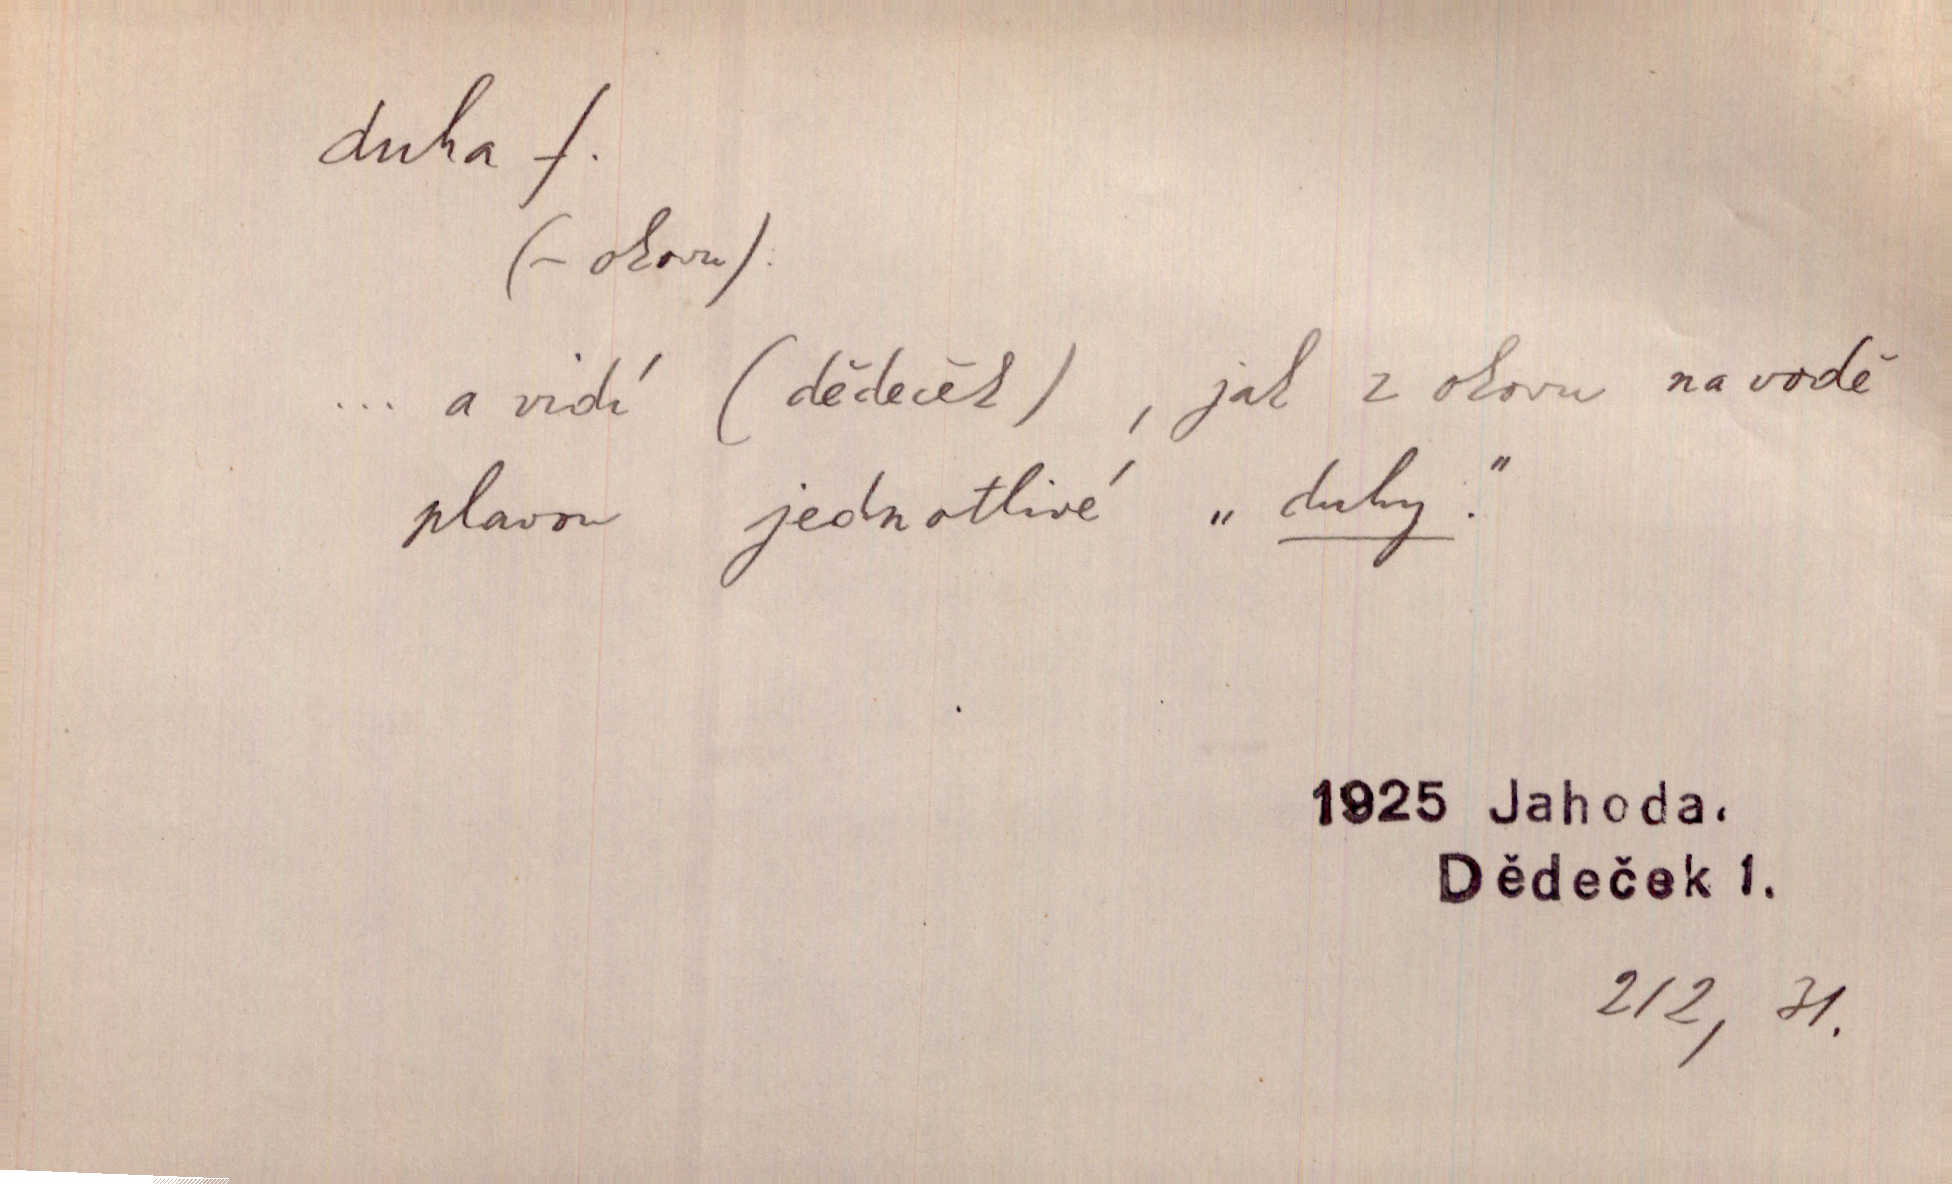 duha f.
(– okovu).
... a vidí (dědeček), jak z okovu na vodě
plavou jednotlivé „duhy.“
1925 Jahoda.
Dědeček 1.
212, 31.